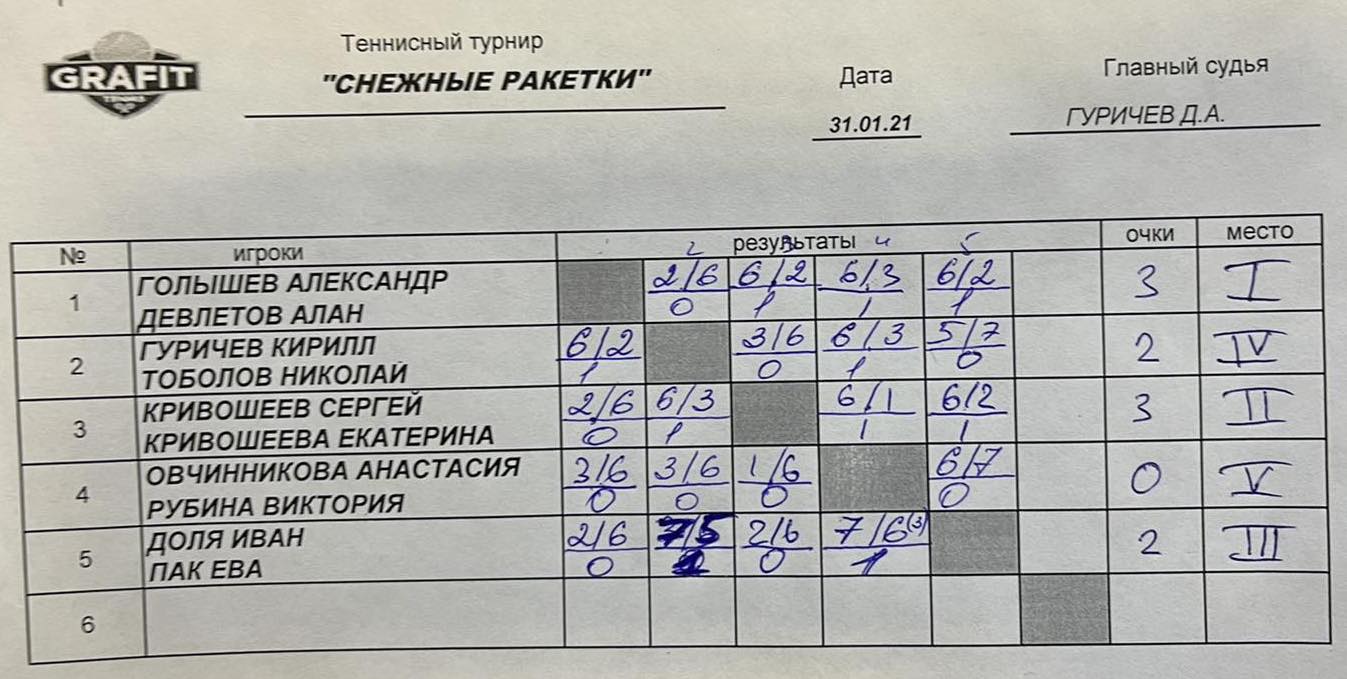 GRAFIT
Теннисный турнир
"СНЕЖНЫЕ РАКЕТКИ"
Дата
31.01.21
Главный судья
ГУРИЧЕВ Д.А.
№ игроки результаты очки место
2 3 4 5
1 ГОЛЫШЕВ АЛЕКСАНДР 2/6 6/2 6/3 6/2 3 I
ДЕВЛЕТОВ АЛАН 0 1 1 1
2 ГУРИЧЕВ КИРИЛЛ 6/2 3/6 6/3 5/7 2 IV
ТОБОЛОВ НИКОЛАЙ 1 0 1 0
3 КРИВОШЕЕВ СЕРГЕЙ 2/6 6/3 6/1 6/2 3 II
КРИВОШЕЕВА ЕКАТЕРИНА 0 1 1 1
4 ОВЧИННИКОВА АНАСТАСИЯ 3/6 3/6 1/6 6/7 0 V
РУБИНА ВИКТОРИЯ 0 0 0 0
5 ДОЛЯ ИВАН 2/6 7/5 2/6 7/6(3) 2 III
ПАК ЕВА 0 0 1
6